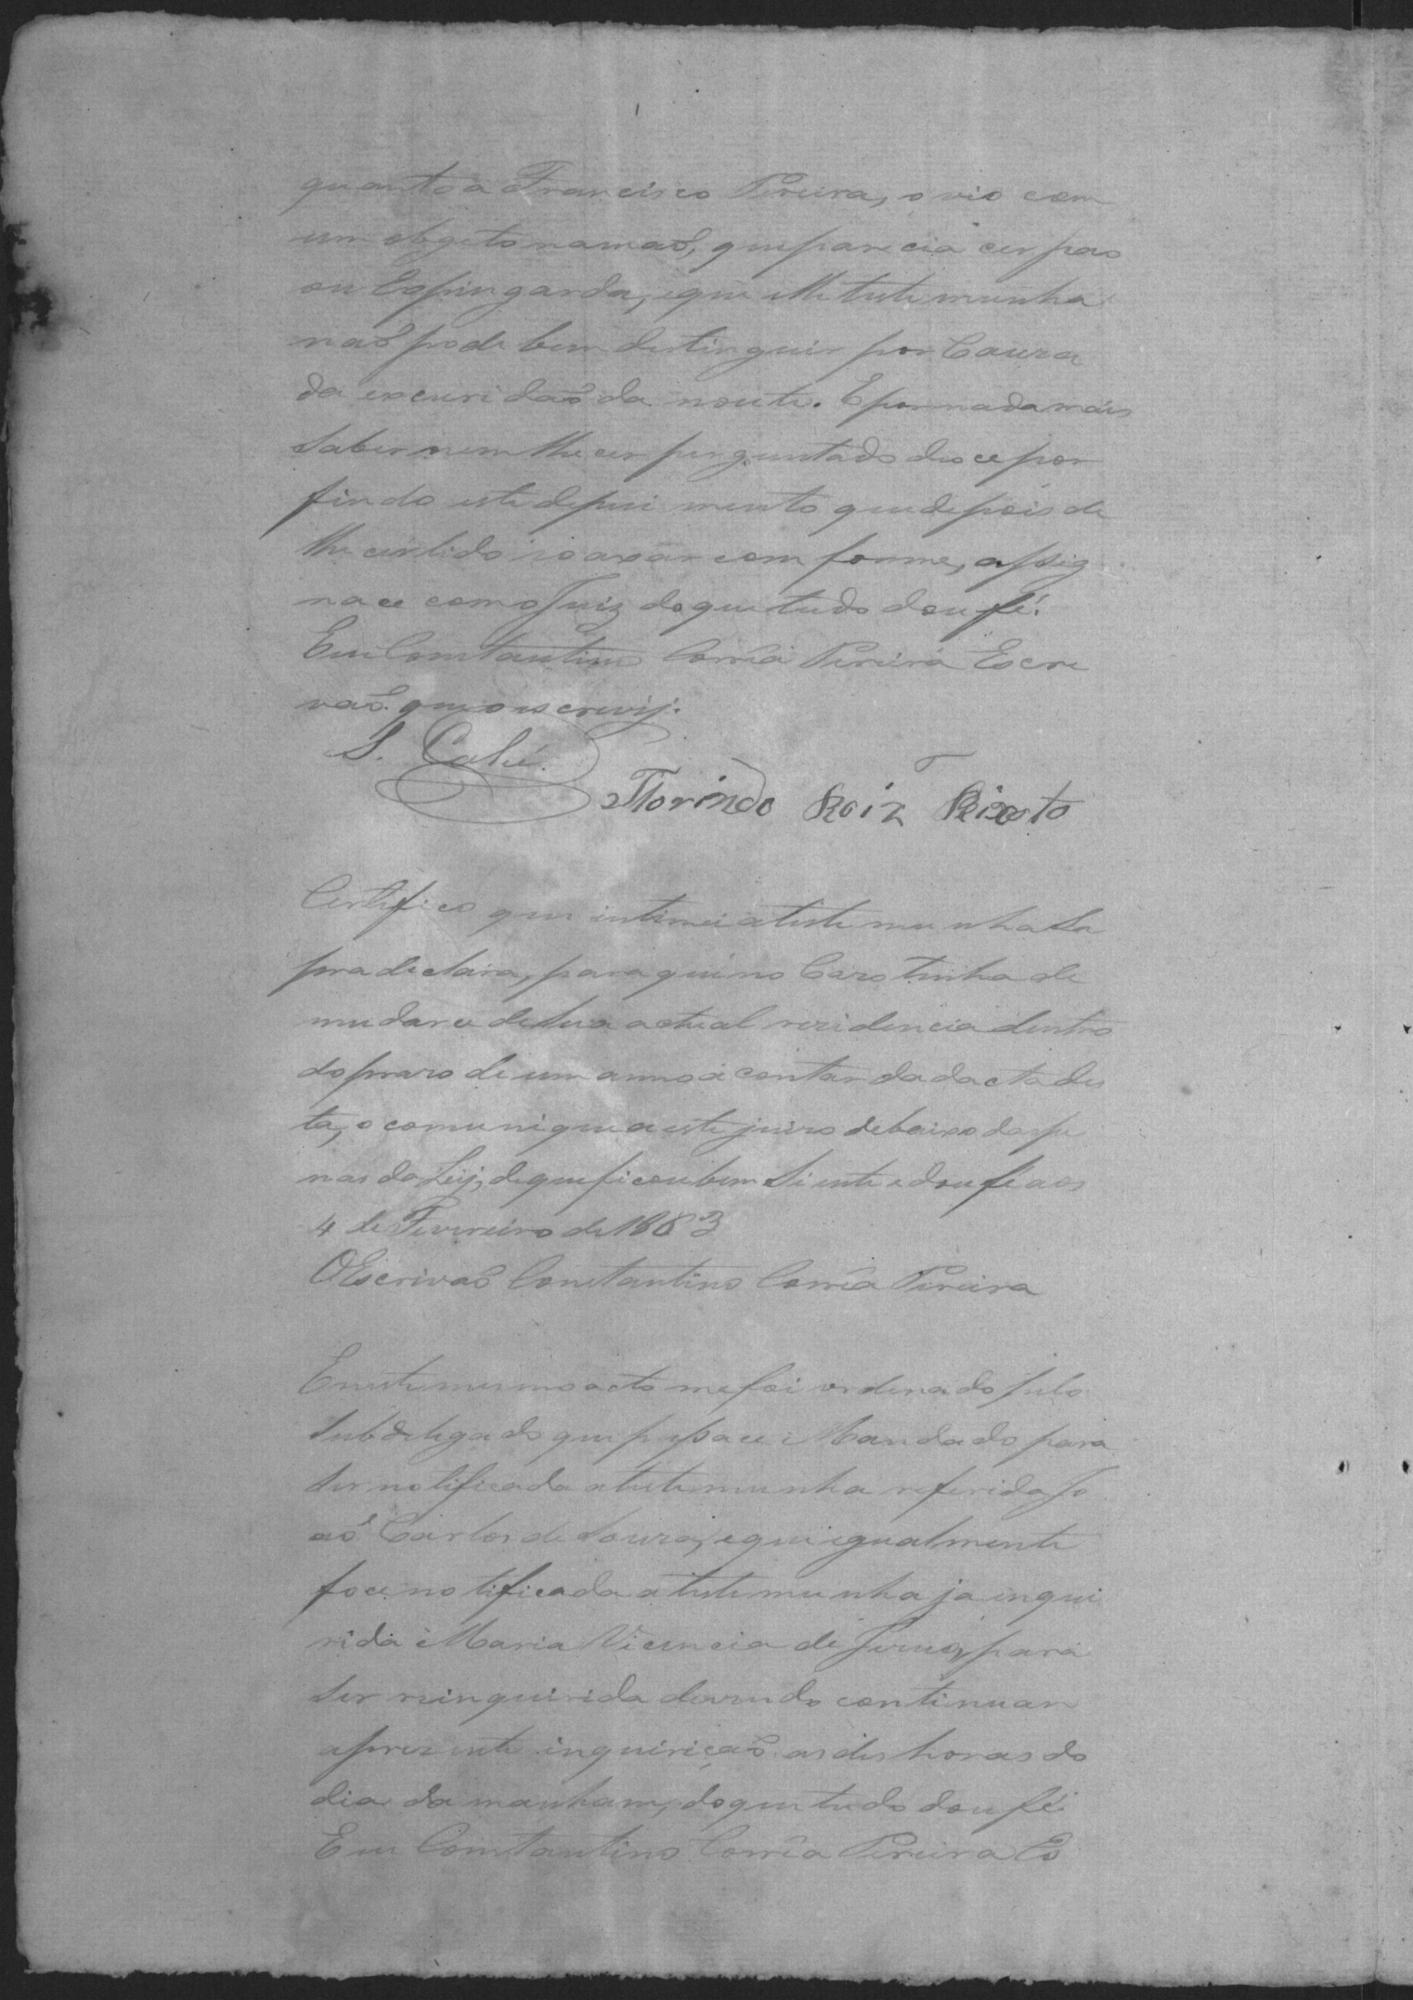 quanto a Francisco Pereira, o vio com
um obgeto na maõ, que parecia cer pao
ou Espingarda, e que elle testemunha
naõ pode bem destinguir por Cauza
da escuridaõ da noute. E por nada mais
saber nem lhe cer perguntado deo ce por
findo este depuimento que depois de
lhe cer lido e o axar com forme, assig
na ce com o Juiz do que tudo dou fé.
Eu Constantino Corrêa Pereira Escri
vaõ que o escrevij.
S. Calé.
Florindo Roiz Peixoto
Certifico que intimei a testemunha Su
pra declara, para que no Cazo tenha de
mudar ce de sua actual rezidencia dentro
do prazo de um anno a contar da dacta des
ta, o comunique a este juizo debaixo das pe
nas da Leij, de que ficou bem Siente e dou fé aos
4 de Fevereiro de 1883
O Escrivaõ Constantino Corrêa Pereira
E neste mesmo acto me foi ordenado pelo
Subdelegado que passace Mandado para
ser notificada a testemunha referida Jo
aõ Carlos de Souza, e que igualmente
foce notificada a testemunha ja inqui
rida Maria Vicencia de Jesus, para
ser reinquirida devendo continuar
a prezente inquiriçaõ as des horas do
dia da manham, do que tudo dou fé
Eu Constantino Corrêa Pereira Es